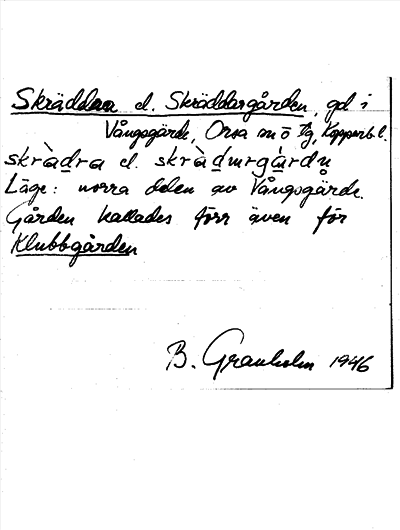 Skräddara el. Skräddargården, gd i
Vångsgärde, Orsa sn ö Tg, Kopparb. l.
skràdra el. skràdurgàrdn
Läge: norra delen av Vångsgärde.
Gården kallades förr även för
Klubbgården
B. Granholm 1946